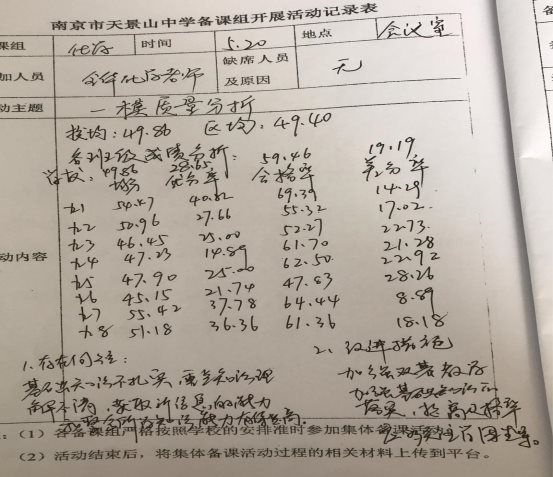 南京市天景山中学备课组开展活动记录表
课组 化学 时间 5.20 地点 会议室
加人员 全体化学老师 缺席人员及原因 无
动主题 一模质量分析
校均：49.86 区均：49.40
各班级成绩分析：
学校：49.86 28.65 59.46 19.19
均分 优分率 合格率 差分率
九1 54.57 40.82 69.39 14.29
九2 50.96 27.66 55.32 17.02
九3 46.45 25.00 52.27 22.73
动内容
九4 47.23 14.89 61.70 21.28
九5 47.90 25.00 62.50 22.92
九6 45.15 21.74 47.83 28.26
九7 55.42 37.78 64.44 8.89
九8 51.18 36.36 61.36 18.18
1. 存在问题：
基础知识不扎实，重要知识理
解不清，获取新信息的能力
能力有待提高.
2. 改进措施
加强双基教学
加强基础知识的
落实，提高及格率
：（1）各备课组严格按照学校的安排准时参加集体备课活动
（2）活动结束后，将集体备课活动过程的相关材料上传到平台。